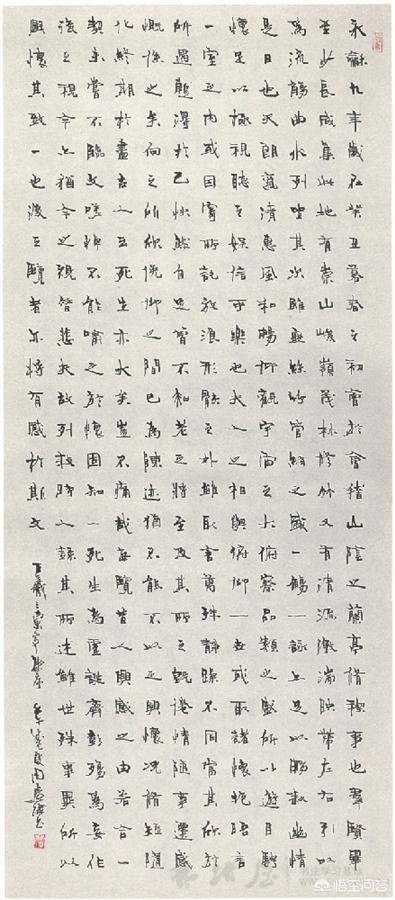 永龢九年歲在癸丑暮春之初會於會稽山陰之蘭亭脩禊事也羣賢畢
至少長咸集此地有崇山峻嶺茂林修竹又有清流激湍映帶左右引以
為流觴曲水列坐其次雖無絲竹管絃之盛一觴一詠亦足以暢敘幽情
是日也天朗氣清惠風和暢仰觀宇宙之大俯察品類之盛所以遊目騁
懷足以極視聽之娛信可樂也夫人之相與俯仰一世或取諸懷抱晤言
一室之內或因寄所託放浪形骸之外雖取舍萬殊靜躁不同當其欣於
所遇蹔得於己怏然自足曾不知老之將至及其所之既倦情隨事遷感
慨係之矣向之所欣俛仰之間已為陳迹猶不能不以之興懷況脩短隨
化終期於盡古人云死生亦大矣豈不痛哉每覽昔人興感之由若合一
契未嘗不臨文嗟悼不能喻之於懷固知一死生為虛誕齊彭殤為妄作
後之視今亦猶今之視昔悲夫故列敘時人錄其所述雖世殊事異所以
興懷其致一也後之覽者亦將有感於斯文
王羲之蘭亭
悟空问答